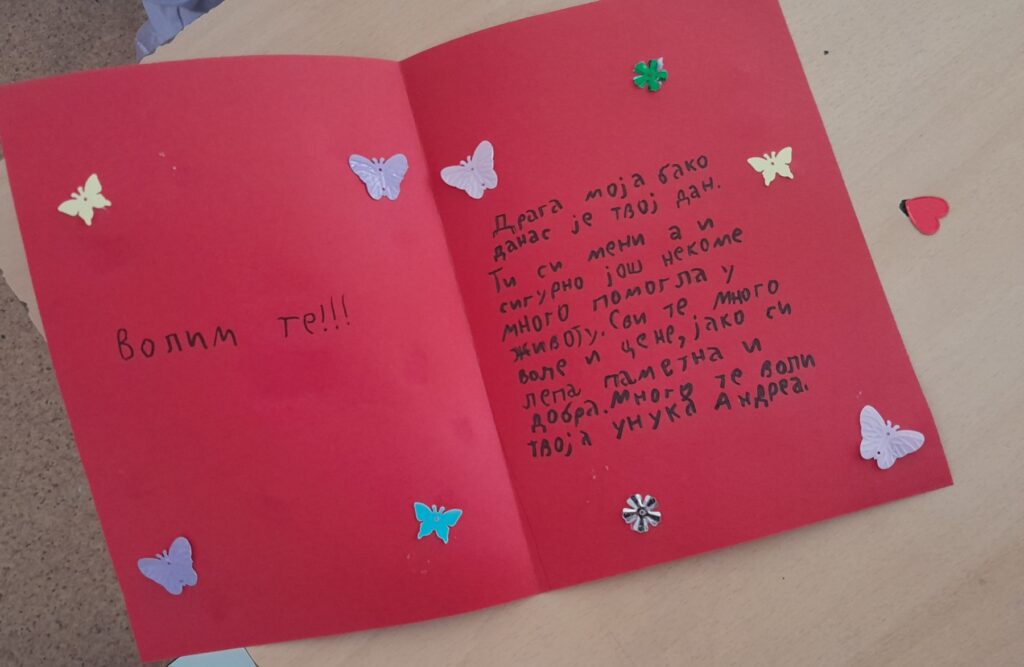 Волим те!!!
Драга моја бако
данас је твој дан.
Ти си мени а и
сигурно још некоме
много помогла у
животу. Сви те много
воле и цене, јако си
лепа паметна и
добра. Много те воли
твоја унука Андреа.